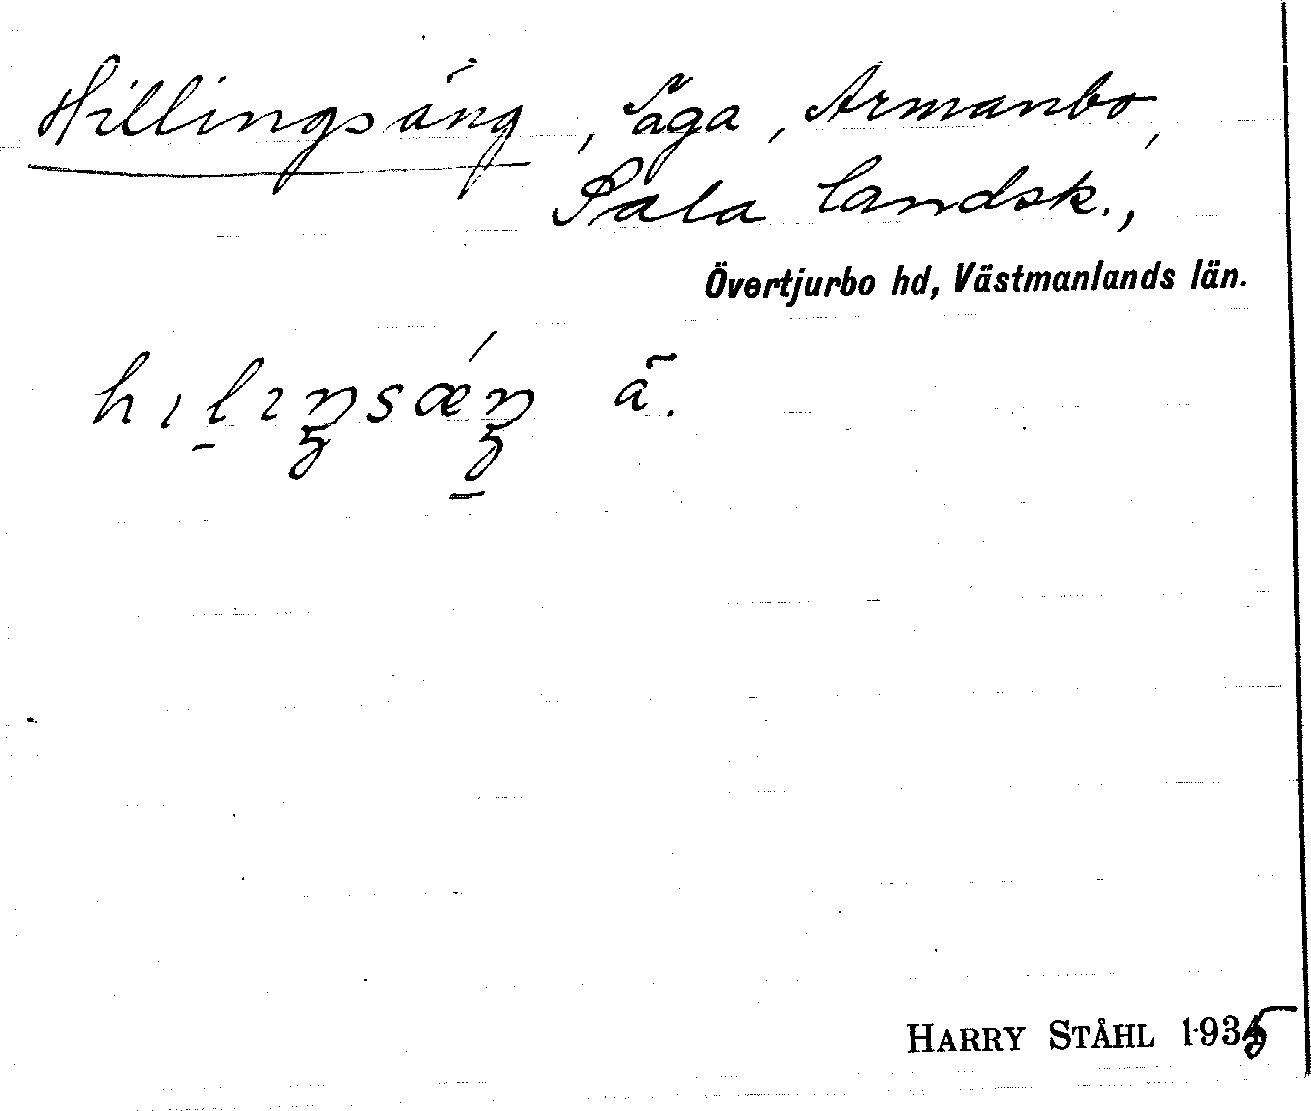 Hillingsäng, äga, Armanbo,
Sala landsk.,
Övertjurbo hd, Västmanlands län.
hɪl̠ɪŋsǽŋ̠ ā.
HARRY STÅHL 1935